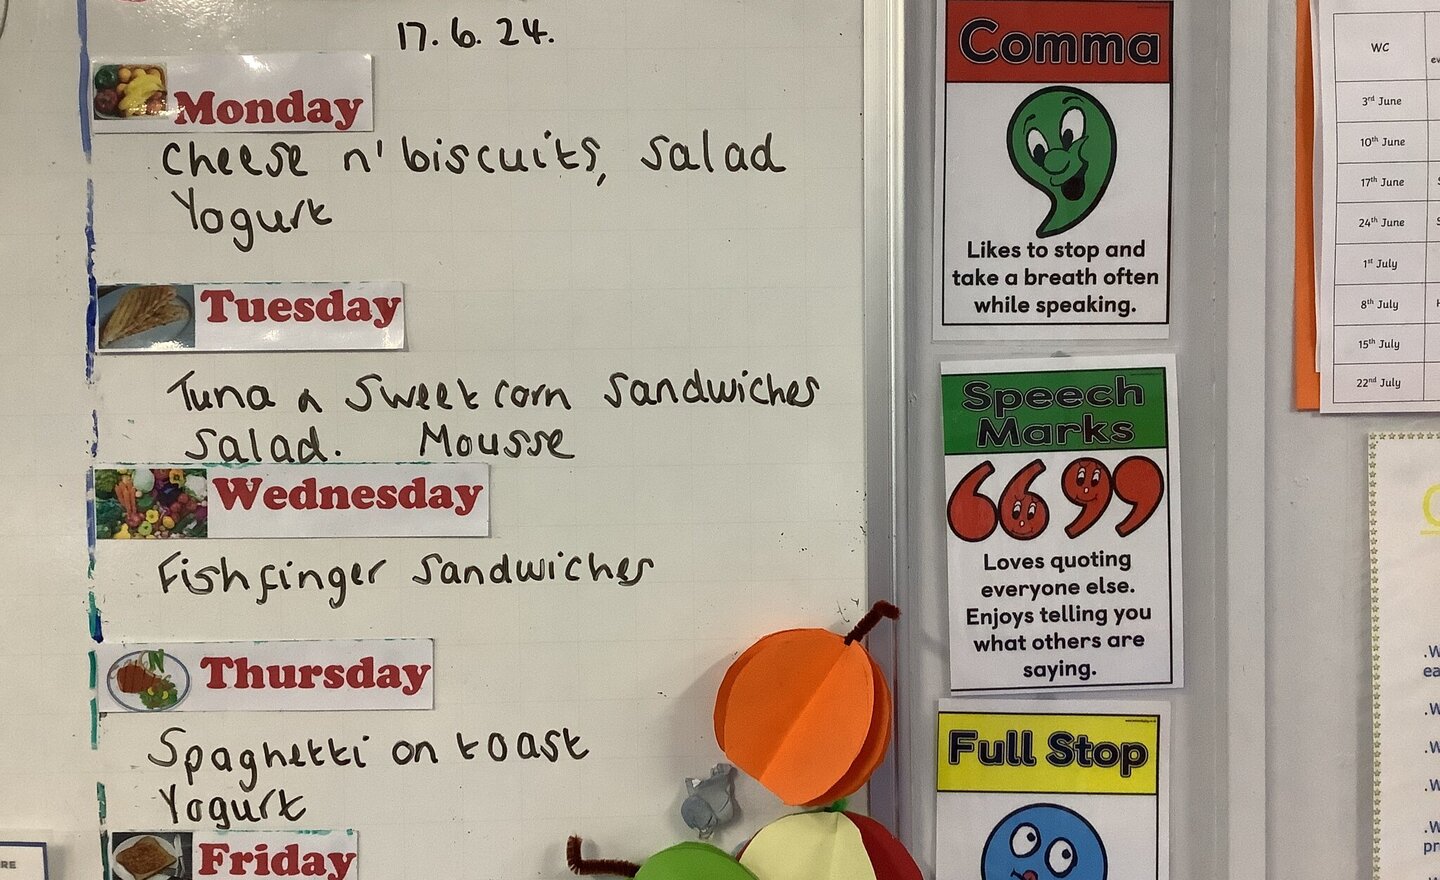 17. 6. 24.
Monday
Cheese n' biscuits, salad
Yogurt
Tuesday
Tuna n Sweetcorn Sandwiches
Salad. Mousse
Wednesday
Fishfinger Sandwiches
Thursday
Spaghetti on toast
Yogurt
Friday
Comma
Likes to stop and
take a breath often
while speaking.
Speech
Marks
66 99
Loves quoting
everyone else.
Enjoys telling you
what others are
saying.
Full Stop
WC
3rd June
10th June
17th June
24th June
1st July
8th July
15th July
22nd July